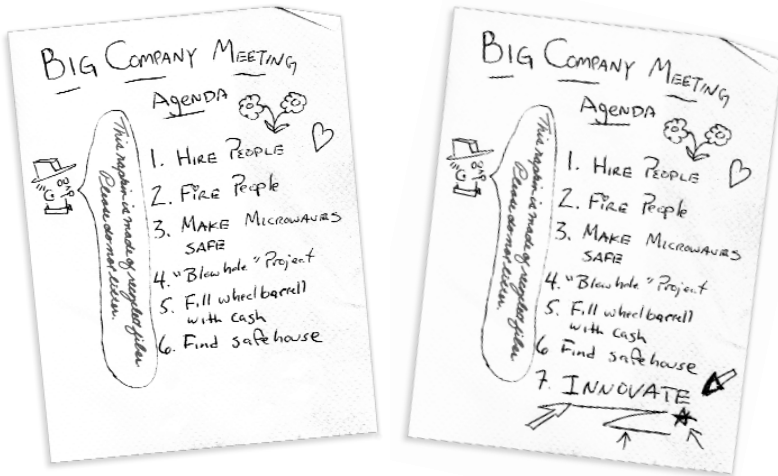 BIG COMPANY MEETING
AGENDA
This napkin is made of recycled fiber
Please do not litter.
1. HIRE PEOPLE
2. FIRE People
3. MAKE MICROWAVES
SAFE
4. "Blowhole" Project
5. Fill wheelbarrell
with cash
6. Find safehouse
BIG COMPANY MEETING
AGENDA
This napkin is made of recycled fiber
Please do not litter.
1. HIRE PEOPLE
2. FIRE People
3. MAKE MICROWAVES
SAFE
4. "Blowhole" Project
5. Fill wheelbarrell
with cash
6 Find safehouse
7. INNOVATE